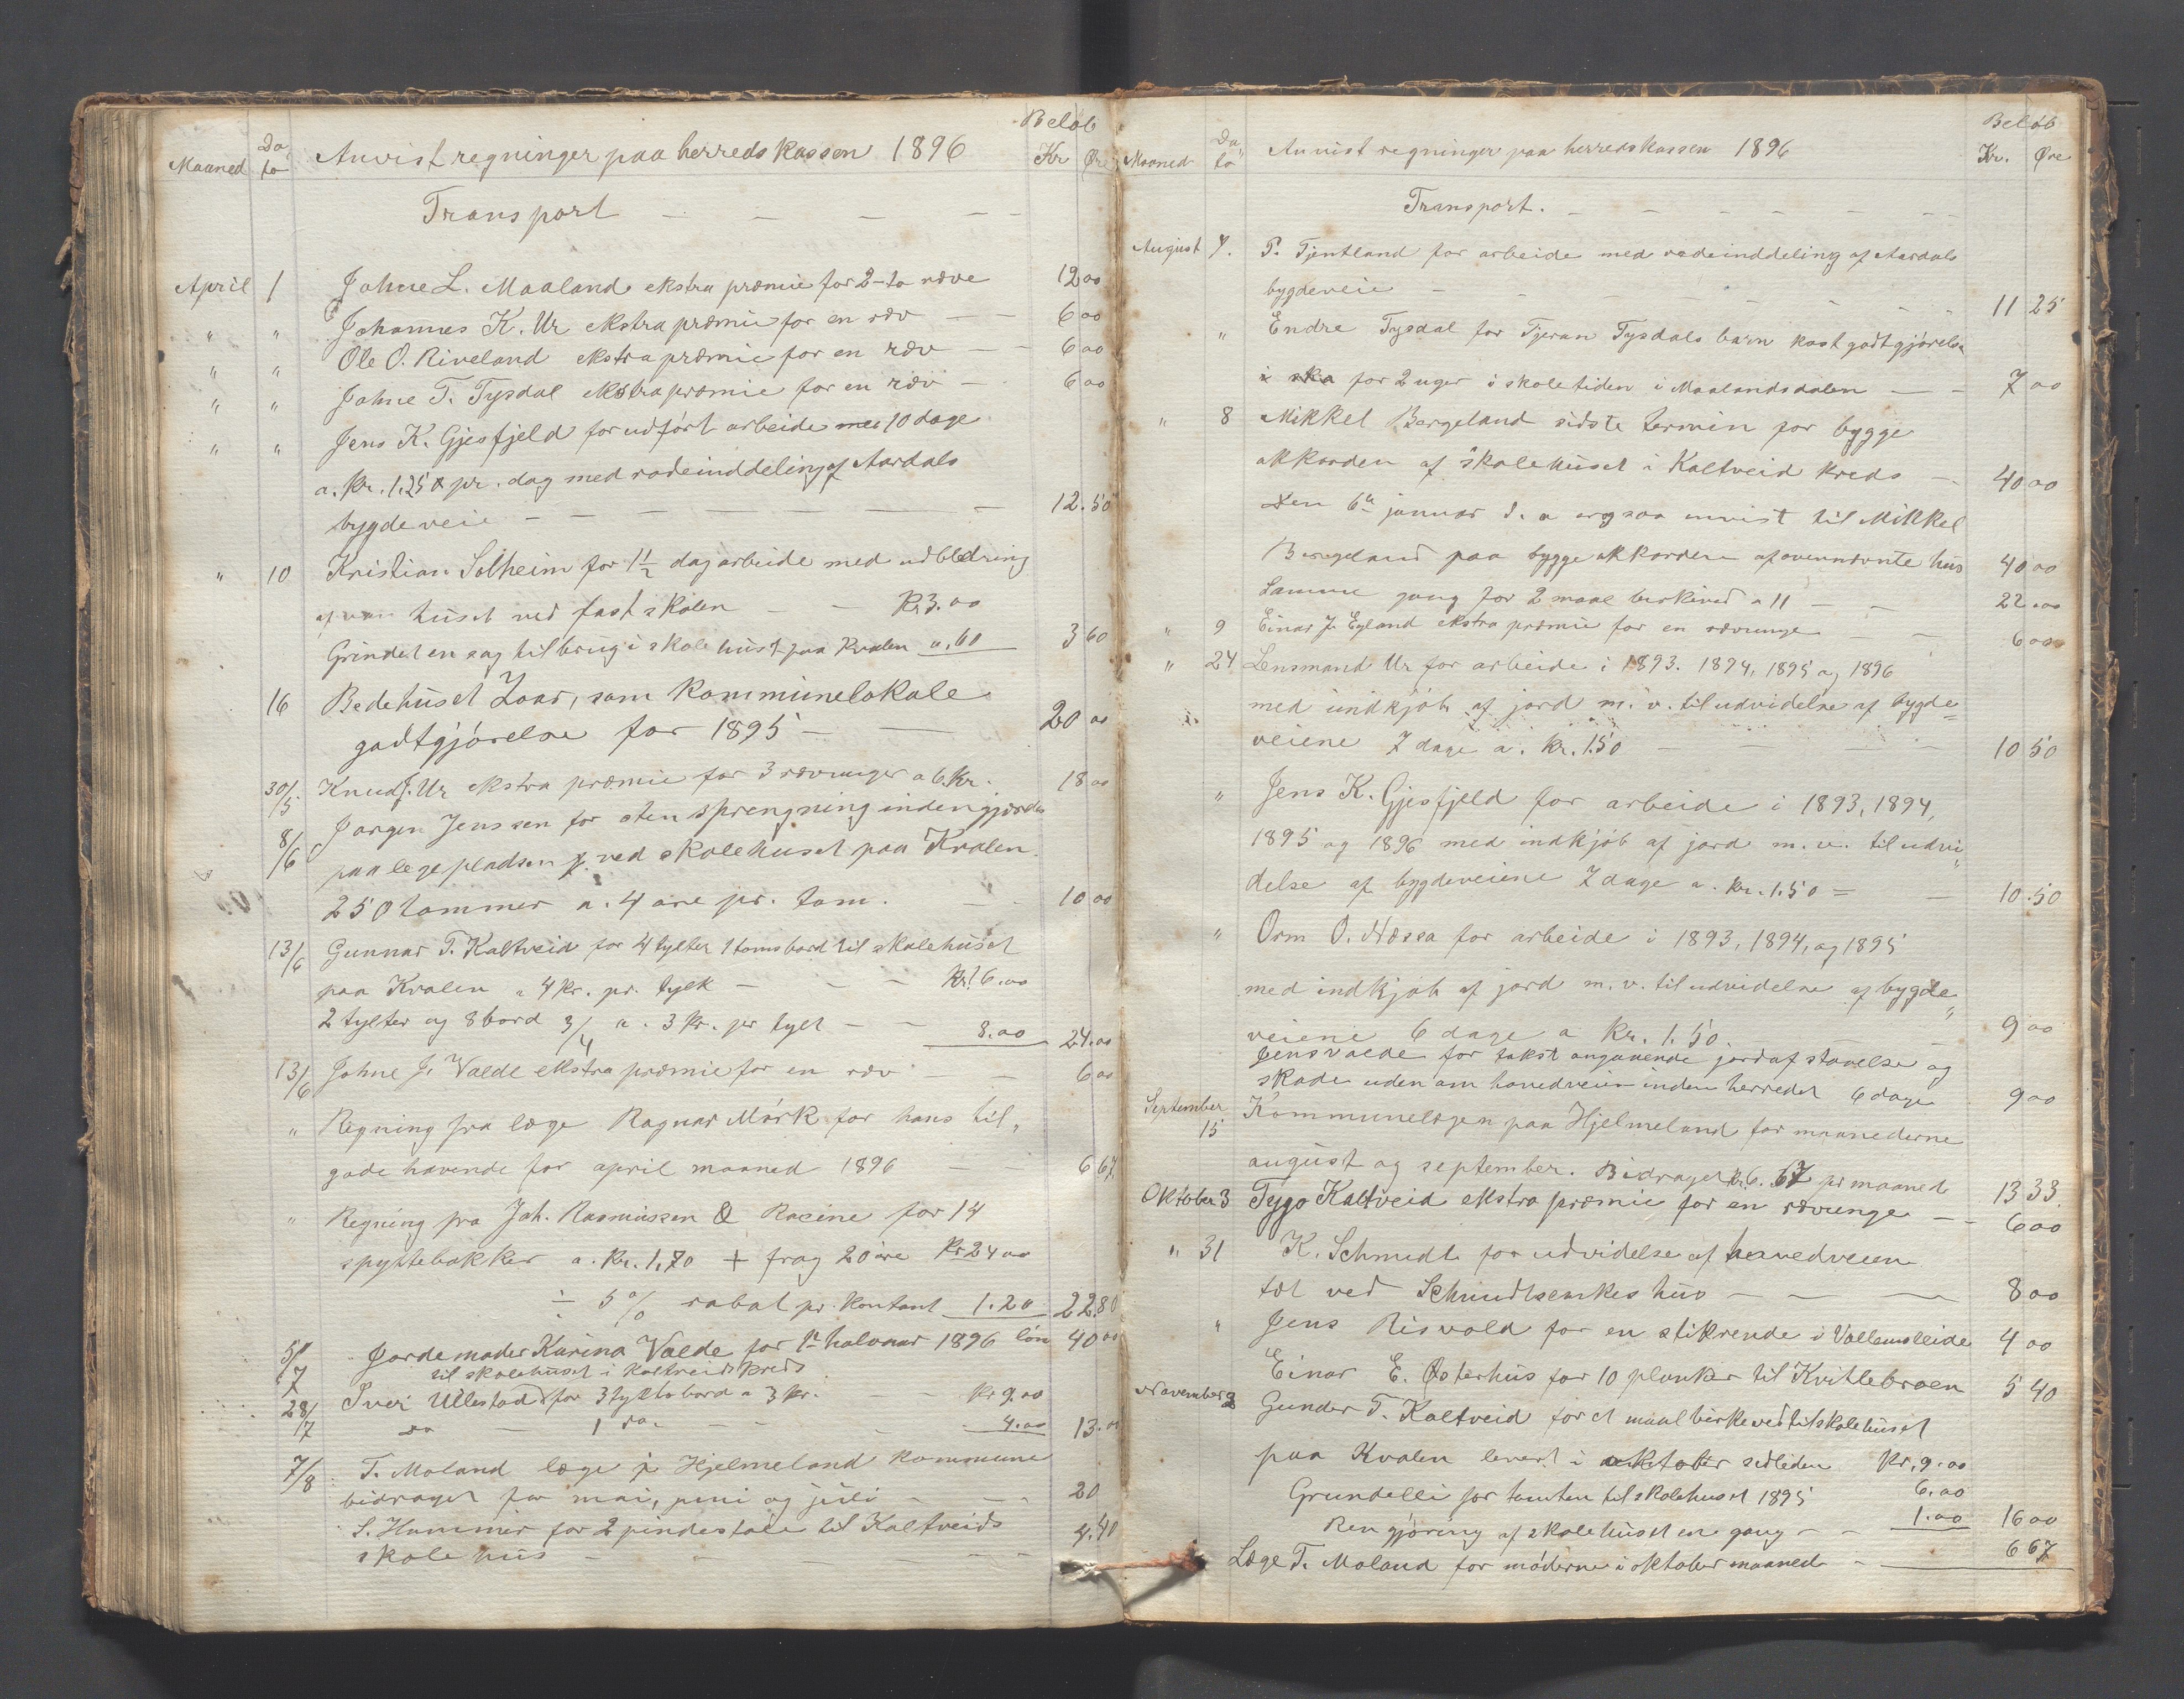 Beløb
Maaned Da to Anvist regninger paa herredskassen 1896 Kr Øre
Transport
April 1 Johne L. Maaland ekstra præmie for 2-to ræve 12 00
" " Johannes K. Ur ekstra præmie for en ræv 6 00
" " Ole O. Riveland ekstra præmie for en ræv 6 00
" " Johne T. Tysdal ekstra præmie for en ræv 6 00
" " Jens K. Gjesfjeld for udført arbeide med 10 dage
a. Kr. 1.25 pr. dag med rodeinddeling af Aardals
bygdeveie 12.50
" 10 Kristian Solheim for 1 1/2 dag arbeide med udbedring
af huset ved fastskolen Kr 3.00
Grindet en sag til brug i skolehuset paa Kvalen ". 60 3 60
16 Bedehuset Zoar, som kommunelokale
godtgjørelse for 1895 20 00
30/5 Knud J. Ur ekstra præmie for 3 ræveunger a 6 Kr. 18 00
8/6 Jørgen Jenssen for sten sprengning inden gjærdet
paa legepladsen ved skolehuset paa Kvalen
250 tommer a. 4 øre pr. tom. 10 00
13/6 Gunnar T. Kaltveid for 4 tylter 1 toms bord til skolehuset
paa Kvalen a 4 Kr. pr. tylt Kr. 16.00
2 tylter og 8 bord 3/4 a. 3 Kr. pr tylt 8.00 24.00
13/6 Johne J. Valde ekstra præmie for en ræv 6 00
" Regning fra læge Ragnar Mørk for hans til"
gode havende for april maaned 1896 6 67
" Regning fra Joh. Rasmussen & Racine for 14
spyttebakker a. Kr. 1,70 + frag 20 øre Kr 24 00
÷ 5% rabat pr. kontant 1.20 22.80
5/7 Jordemoder Karina Valde for 1ste halvaar 1896 løn 40 00
til skolehuset i Kaltveid kreds
28/7 Iver Ullestad for 3 tylt bord a 3 kr. Kr 9.00
do 1 do. 4.00 13.00
7/8 T. Moland læge i Hjelmeland kommune
bidraget for mai, juni og juli 20
S. Hammer for 2 pindestole til Kaltveids 4.40
skolehus
Beløb
Maaned Da to Anvist regninger paa herredskassen 1896 Kr. Øre
Transport.
August 7. T. Tjentland for arbeide med rodeinddeling af Aardals
bygdeveie 11 25
" Endre Tysdal for Tjeran Tysdals barn kostgodtgjørelse
i ska for 2 uger i skoletiden i Maalandsdalen 7 00
" 8 Mikkel Bergeland sidste termin for bygge
akkorden af skolehuset i Kaltveid kreds 40 00
Den 6te januar d. a ogsaa anvist til Mikkel
Bergeland paa bygge akkorden af ovennævnte hus 40 00
Samme gang for 2 maal birkeved a 11 22.00
" 9 Einar J. Egland ekstra præmie for en ræveunge 6 00
" 24 Lensmand Ur for arbeide i 1893. 1894, 1895 og 1896
med indkjøb af jord m. v. til udvidelse af bygde=
veiene 7 dage a. Kr. 1.50 10 50
" Jens K. Gjesfjeld for arbeide i 1893, 1894,
1895 og 1896 med indkjøb af jord m. v. til udvi"
delse af bygdeveiene 7 dage a. Kr. 1.50 = 10.50
" Orm O. Næssa for arbeide i 1893, 1894, og 1895
med indkjøb af jord m. v. til udvidelse af bygde"
veiene 6 dage a Kr. 1.50. 9 00
Jens Valde for takst angaaende jordafstaaelse og
skade uden om hovedveien inden herredet 6 dage 9 00
September 15 Kommunelægen paa Hjelmeland for maanederne
august og september. Bidraget Kr. 6. 67 pr maaned 13 33
Oktober 3 Tygo Kaltveid ekstra præmie for en ræveunge 6 00
" 31 K. Schmidt for udvidelse af hovedveien
tæt ved Schmidt hus 8 00
" Jens Risvold for en stikrende i Valleme 4 00
Einar E. Østerhus for 10 planker til Kvitlebroen 5 40
November 2 Gunder T. Kaltveid for et maal birkeved til skolehuset
paa Kvalen levert i oktober Kr. 9.00
Grundleie for tomten til skolehuset 1895 6.00
Rengjøring af skolehuset en gang 1.00 16 00
Læge T. Moland for møderne i oktober maaned 6 67